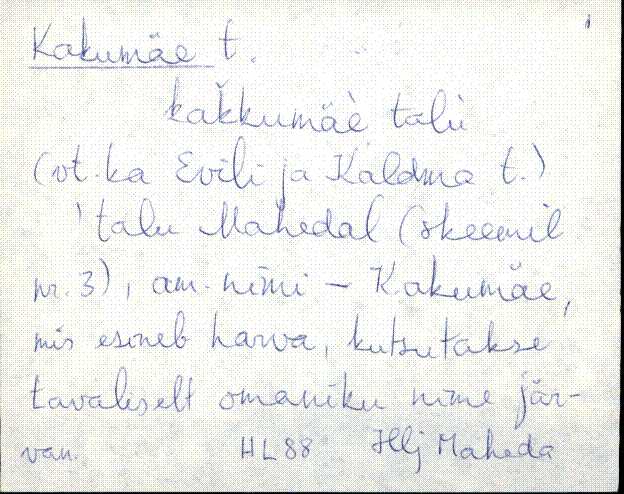 Kakumäe t.
kak̆kumäè talù
(vt. ka Evili ja Kaldma t.)
'talu Mahedal (skeemil
nr. 3), am. nimi – Kakumäe,
mis esineb harva, kutsutakse
tavaliselt omaniku nime jär-
van. HL88 Hlj Maheda